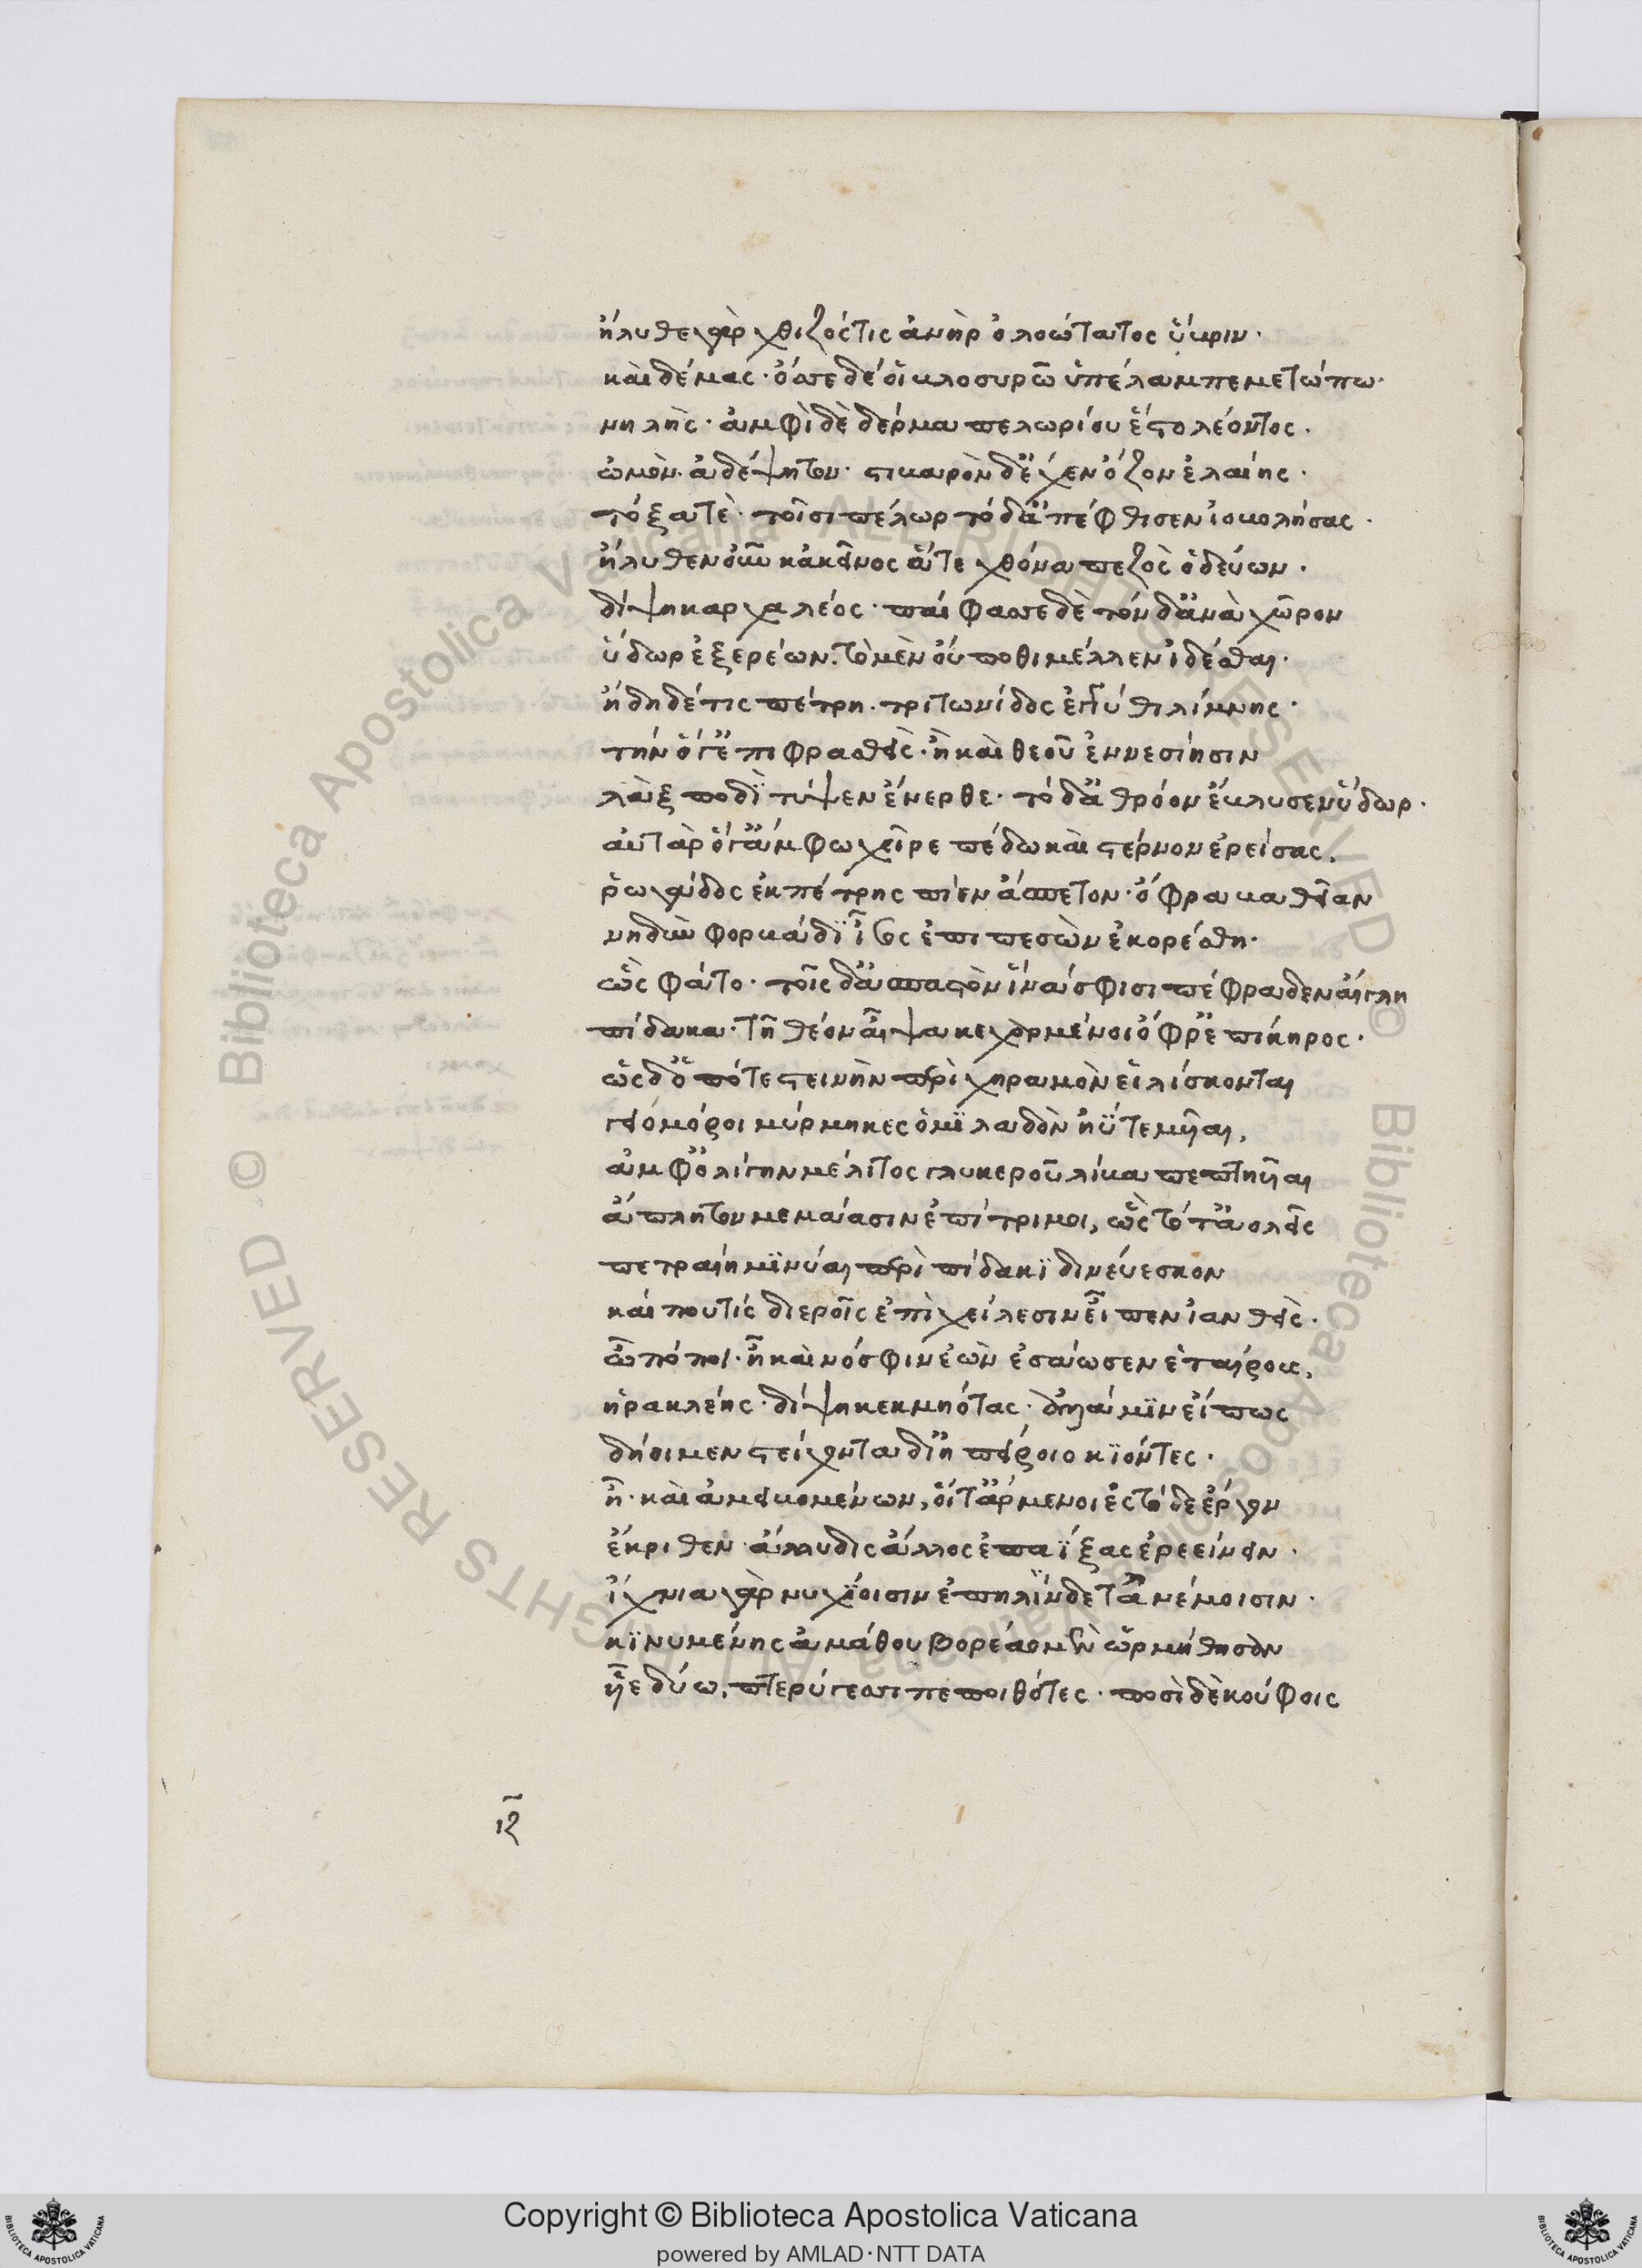 ἤλυθε γὰρ χθιζός τις ἀνὴρ ὀλοώτατος ὕβριν·
καὶ δέμας· ὄσσε δέ οἱ βλοσυρῶ ὑπέλαμπε μετώπω·
νηλὴς· ἀμφὶ δὲ δέρμα πελωρίου ἕστο λέοντος·
ὠμὸν· ἀδέψητον· στιβαρὸν δ' ἔχεν ὄζον ἐλαίης·
τόξα τὲ· τοῖσι πέλωρ τόδ' ἀπέφθισεν ἰοβολήσας·
ἤλυθεν οὖν κἀκεῖνος ἅτε χθόνα πεζὸς ὁδεύων·
δίψη καρχαλέος· παίφασσε δὲ τόνδ' ἀνὰ χῶρον
ὕδωρ ἐξερέων· τὸ μὲν οὔποθι μέλλεν ἰδέσθαι·
ἤδη δέ τις πέτρη· τριτωνίδος ἐγγύθι λίμνης·
τὴν ὅγ' ἐπιφρασθεὶς· ἢ καὶ θεοῦ ἐννεσίησιν
λὰξ ποδὶ τύψεν ἔνερθε· τὸ δ' ἀθρόον ἔκλυσεν ὕδωρ·
αὐτὰρ ὅγ' ἄμφω χεῖρε πέδω καὶ στέρνον ἐρείσας,
ῥωγάδος ἐκ πέτρης πίεν ἄσπετον· ὄφρα βαθεῖαν
νηδὺν φορβάδι ἶσος ἐπιπεσὼν ἐκορέσθη·
ὣς φάτο· τοῖς δ' ἀσπαστὸν ἵνα σφισι πέφραδεν αἴγλη
πίδακα· τῆ θέον αἶψα κεχαρμένοι ὄφρ' ἐπίκηρος·
ὡς δ' ὁπότε στεινὴν περὶ χηραμὸν εἱλίσκονται
γειομόροι μύρμηκες ὁμιλαδὸν ἠΰτε μυῖαι,
ἀμφ' ὀλίγην μέλιτος γλυκεροῦ λίβα πεπτηυῖαι
ἄπλητον μεμάασιν ἐπίτριμοι, ὣς τότ' ἀολεῖς
πετραίη μινύαι περὶ πίδακι δινέυεσκον
καί που τὶς διεροῖς ἐπὶ χείλεσιν εἶπεν ἰανθεὶς·
ὦ πόποι· ἦ καὶ νόσφιν ἐὼν ἐσάωσεν ἑταίρους,
ἡρακλέης· δίψη κεκμηότας· ἀλλά μιν εἴπως
δήοιμεν στείχοντα δι' ἠπείροιο κιόντες·
ἦ· καὶ ἀμειβομένων, οἵ τ' ἄρμενοι ἐς τόδε ἔργον
ἔκριθεν ἄλλυδις ἄλλος ἐπαΐξας ἐρεείνειν·
ἴχνια γὰρ νυχίοισιν ἐπηλίνδετ' ἀνέμοισιν·
κινυμένης ἀμάθου βορέαο μὲν ὡρμήθησαν
υἷε δύω, πτερύγεσσι πεποιθότες· ποσὶ δὲ κούφοις
ιζ
Copyright © Biblioteca Apostolica Vaticana
powered by AMLAD·NTT DATA